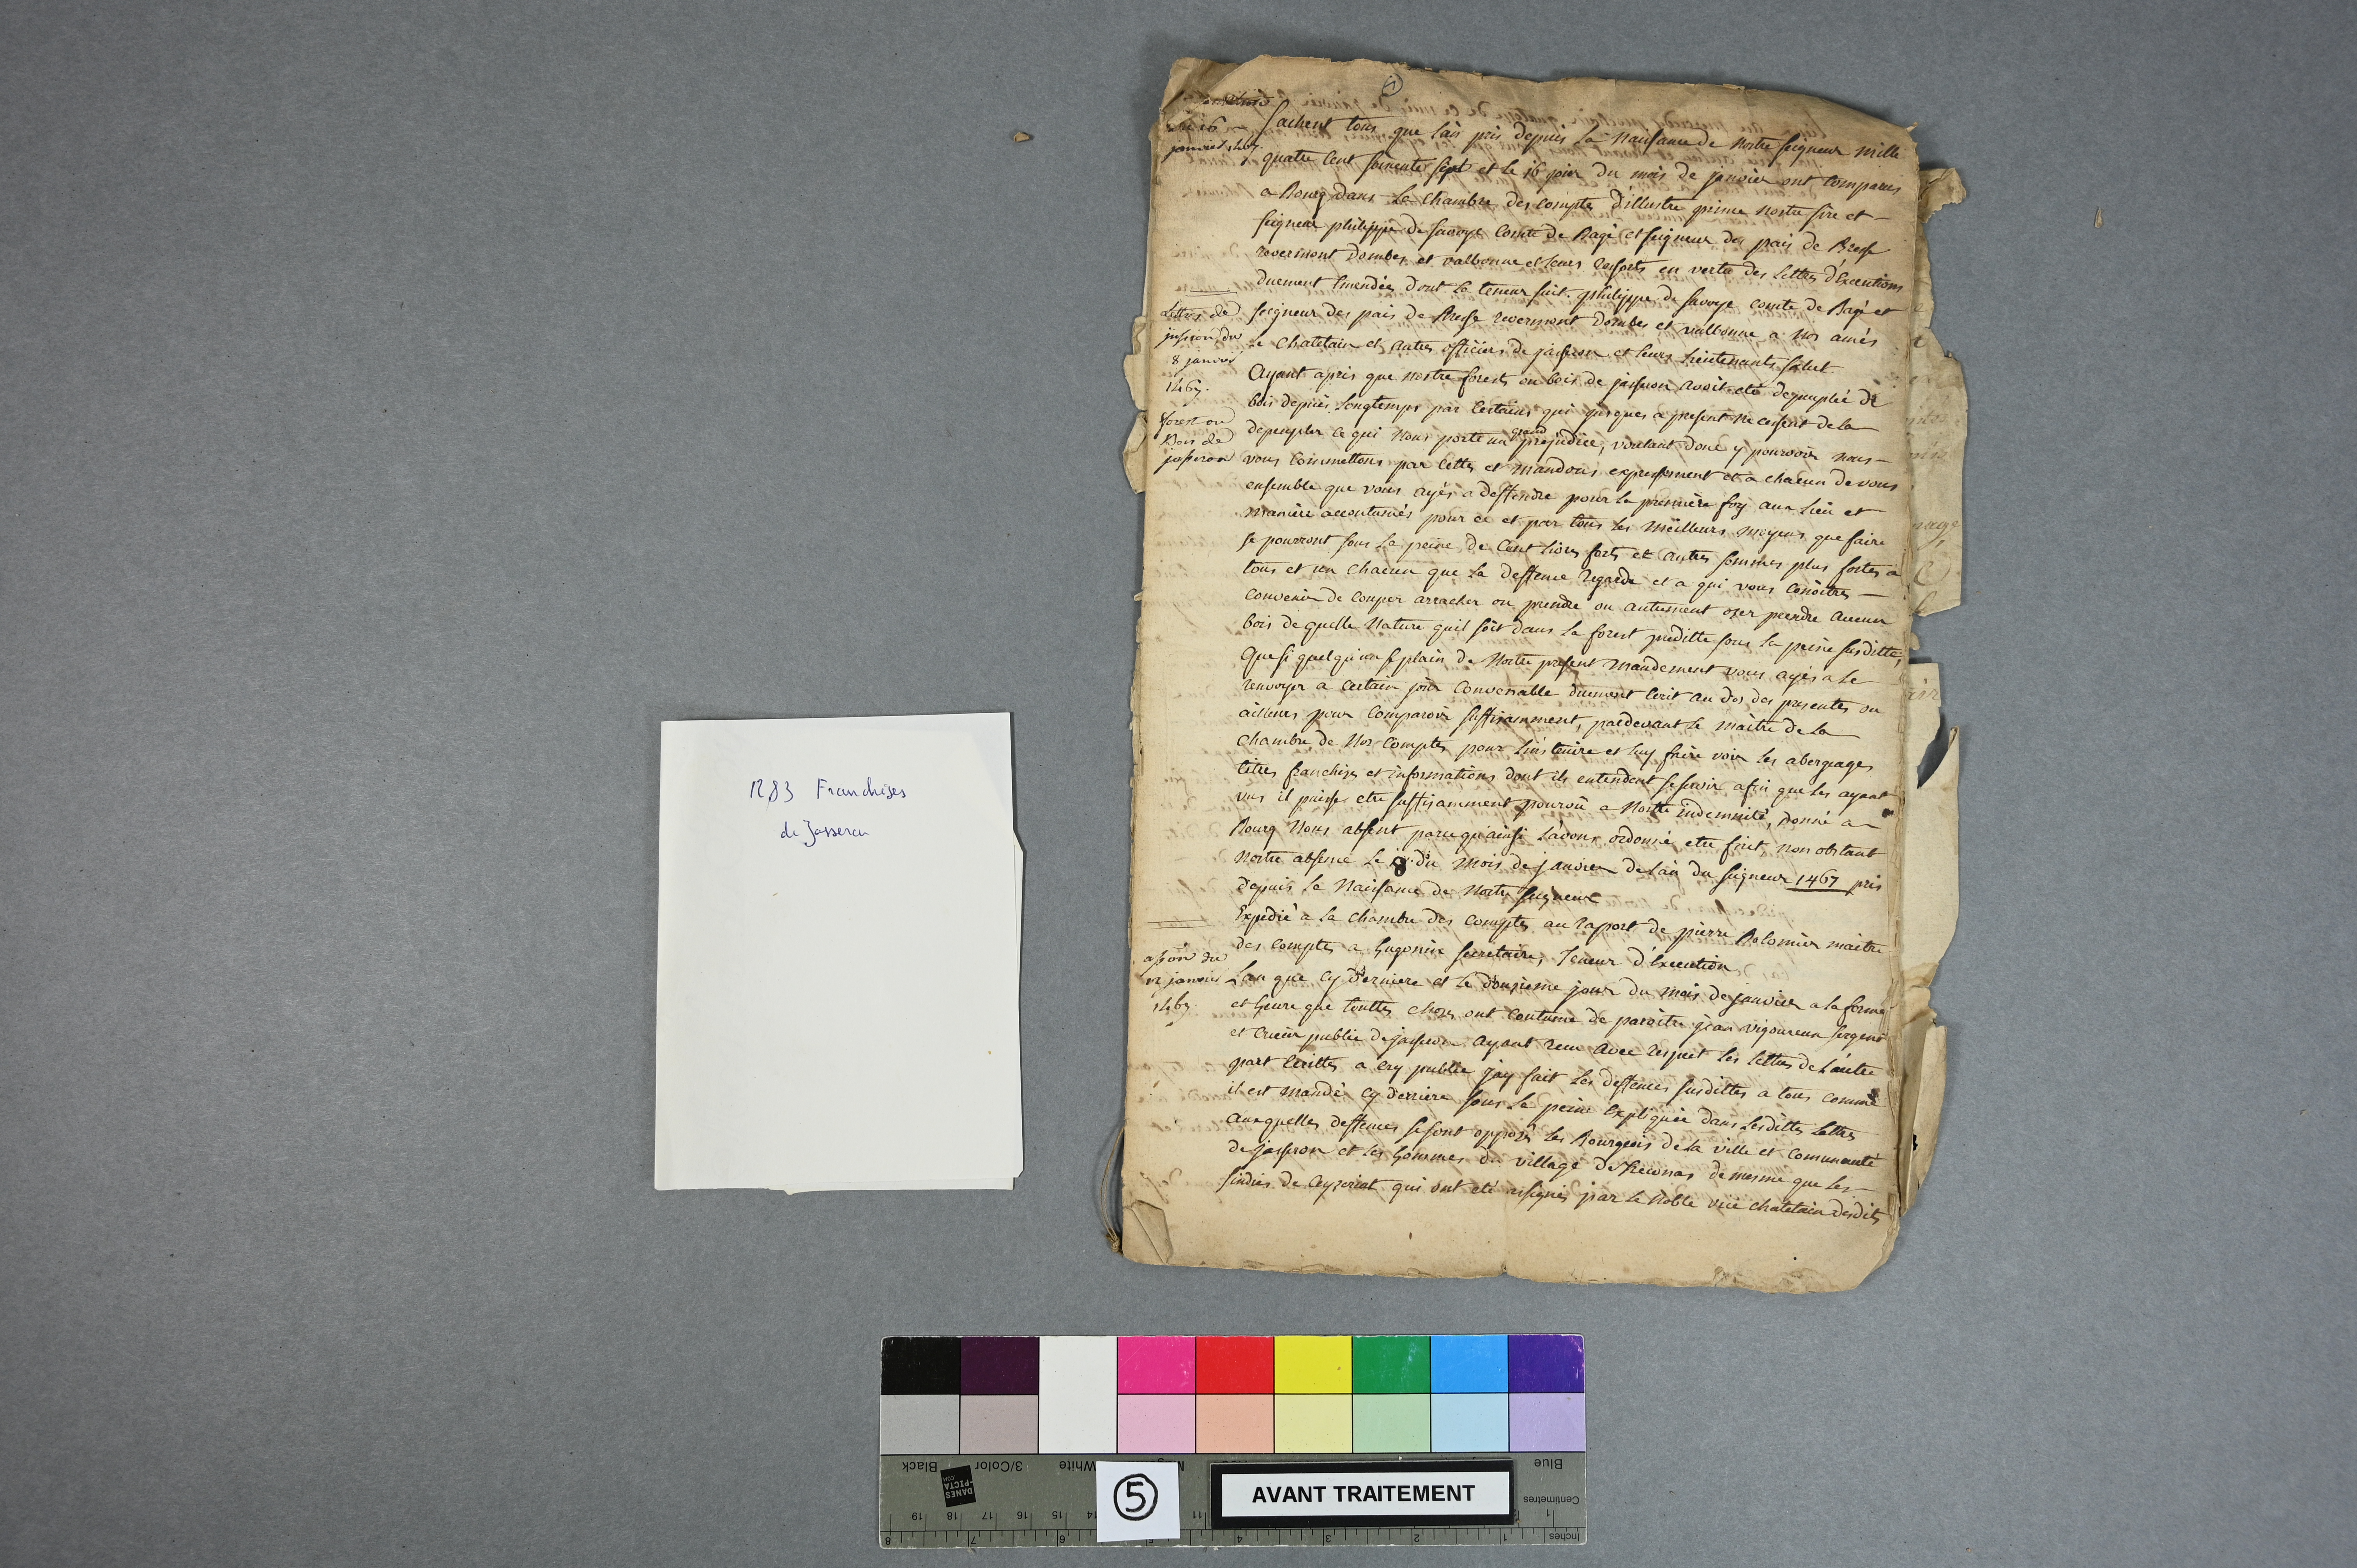 1283 Franchises
de Jasseron
du 16
janvier 1467
Sachent tous que l'an pris depuis la naissance de nostre seigneur mille
quatre cent soixente sept et le 16 jour du mois de janvier ont comparus
a Bourg dans la Chambre des comptes d'illustre prince nostre sire et
seigneur philippe de savoye Comte de Bagé et seigneur des païs de Bresse
revermont dombes et valbonne et leurs resforts en vertu des lettres d'Execution
duement Emendées dont la teneur suit. philippe de savoye comte de Bagé et
Lettres de
jussion du
8 janvier
1467.
seigneur des païs de Bresse revermont dombes et valbonne a nos amés
le Chatelain et autres officiers de jasseron et leurs lieutenants salut
Ayant apris que nostre forest ou bois de jasseron avoit eté depeuplée de
bois depuis longtemps par certains qui jusques a present ne cessent de la
forest ou
Bois de
jasseron
depeupler ce qui nous porte un grand prejudice, voulant donc y pourvoir nous
vous commettons par cettes et mandons expressement et a chacun de vous
ensemble que vous ayés a deffendre pour la premiere foy aux lieu et
maniere accoutumés pour ce et par tous les meilleurs moyens que faire
se pourront sous la peine de Cent livres forts et autres sommes plus fortes a
tous et un chacun que la deffence regarde et a qui vous conoitres
convenir de couper arracher ou prendre ou autrement oser prendre aucun
bois de quelle nature quil soit dans la forest preditte sous la peine susditte,
Que si quelqu'un se plain de nostre present mandement vous ayés a le
renvoyer a certain jour convenable duement ecrit au dos des presentes ou
ailleurs pour comparoir suffisamment, pardevant le maitre de la
Chambre de nos Comptes pour l'instruire et luy faire voir les abergeages
titres franchises et informations dont ils entendent se servir afin que les ayant
vus il puisse etre suffisamment pourvû a nostre indemnité, donné a
Bourg nous absent parce qu'ainsi l'avons ordonné etre fait, non obstant
nostre absence le 8 du mois de janvier de l'an du seigneur 1467 pris
depuis la naissance de nostre seigneur
Expedié a la chambre des comptes au raport de pierre Bolomier maitre
des comptes a hugonin secretaire, Teneur d'Execution
du
12 janvier
1467
L'an que cy derriere et le douzieme jour du mois de janvier a la forme
et heure que touttes choses ont coutume de paroitre jean vigoureux sergent
et crieur public de jasseron ayant reçu avec respect les lettres de l'autre
part écrittes a cry public jay fait les deffences susdittes a tous comme
il est mandé cy derriere sous la peine Expliquée dans lesdittes lettres
auxquelles deffences se sont opposés les Bourgeois de la ville et Comunauté
de jasseron et les hommes du village de de mesme que les
sindics de Ceyzeriat qui ont eté assignés par le noble vice chatelain desdits
Black
3/Color
White
Blue
DANES
-PICTA
.COM
5
AVANT TRAITEMENT
Centimetres
Inches